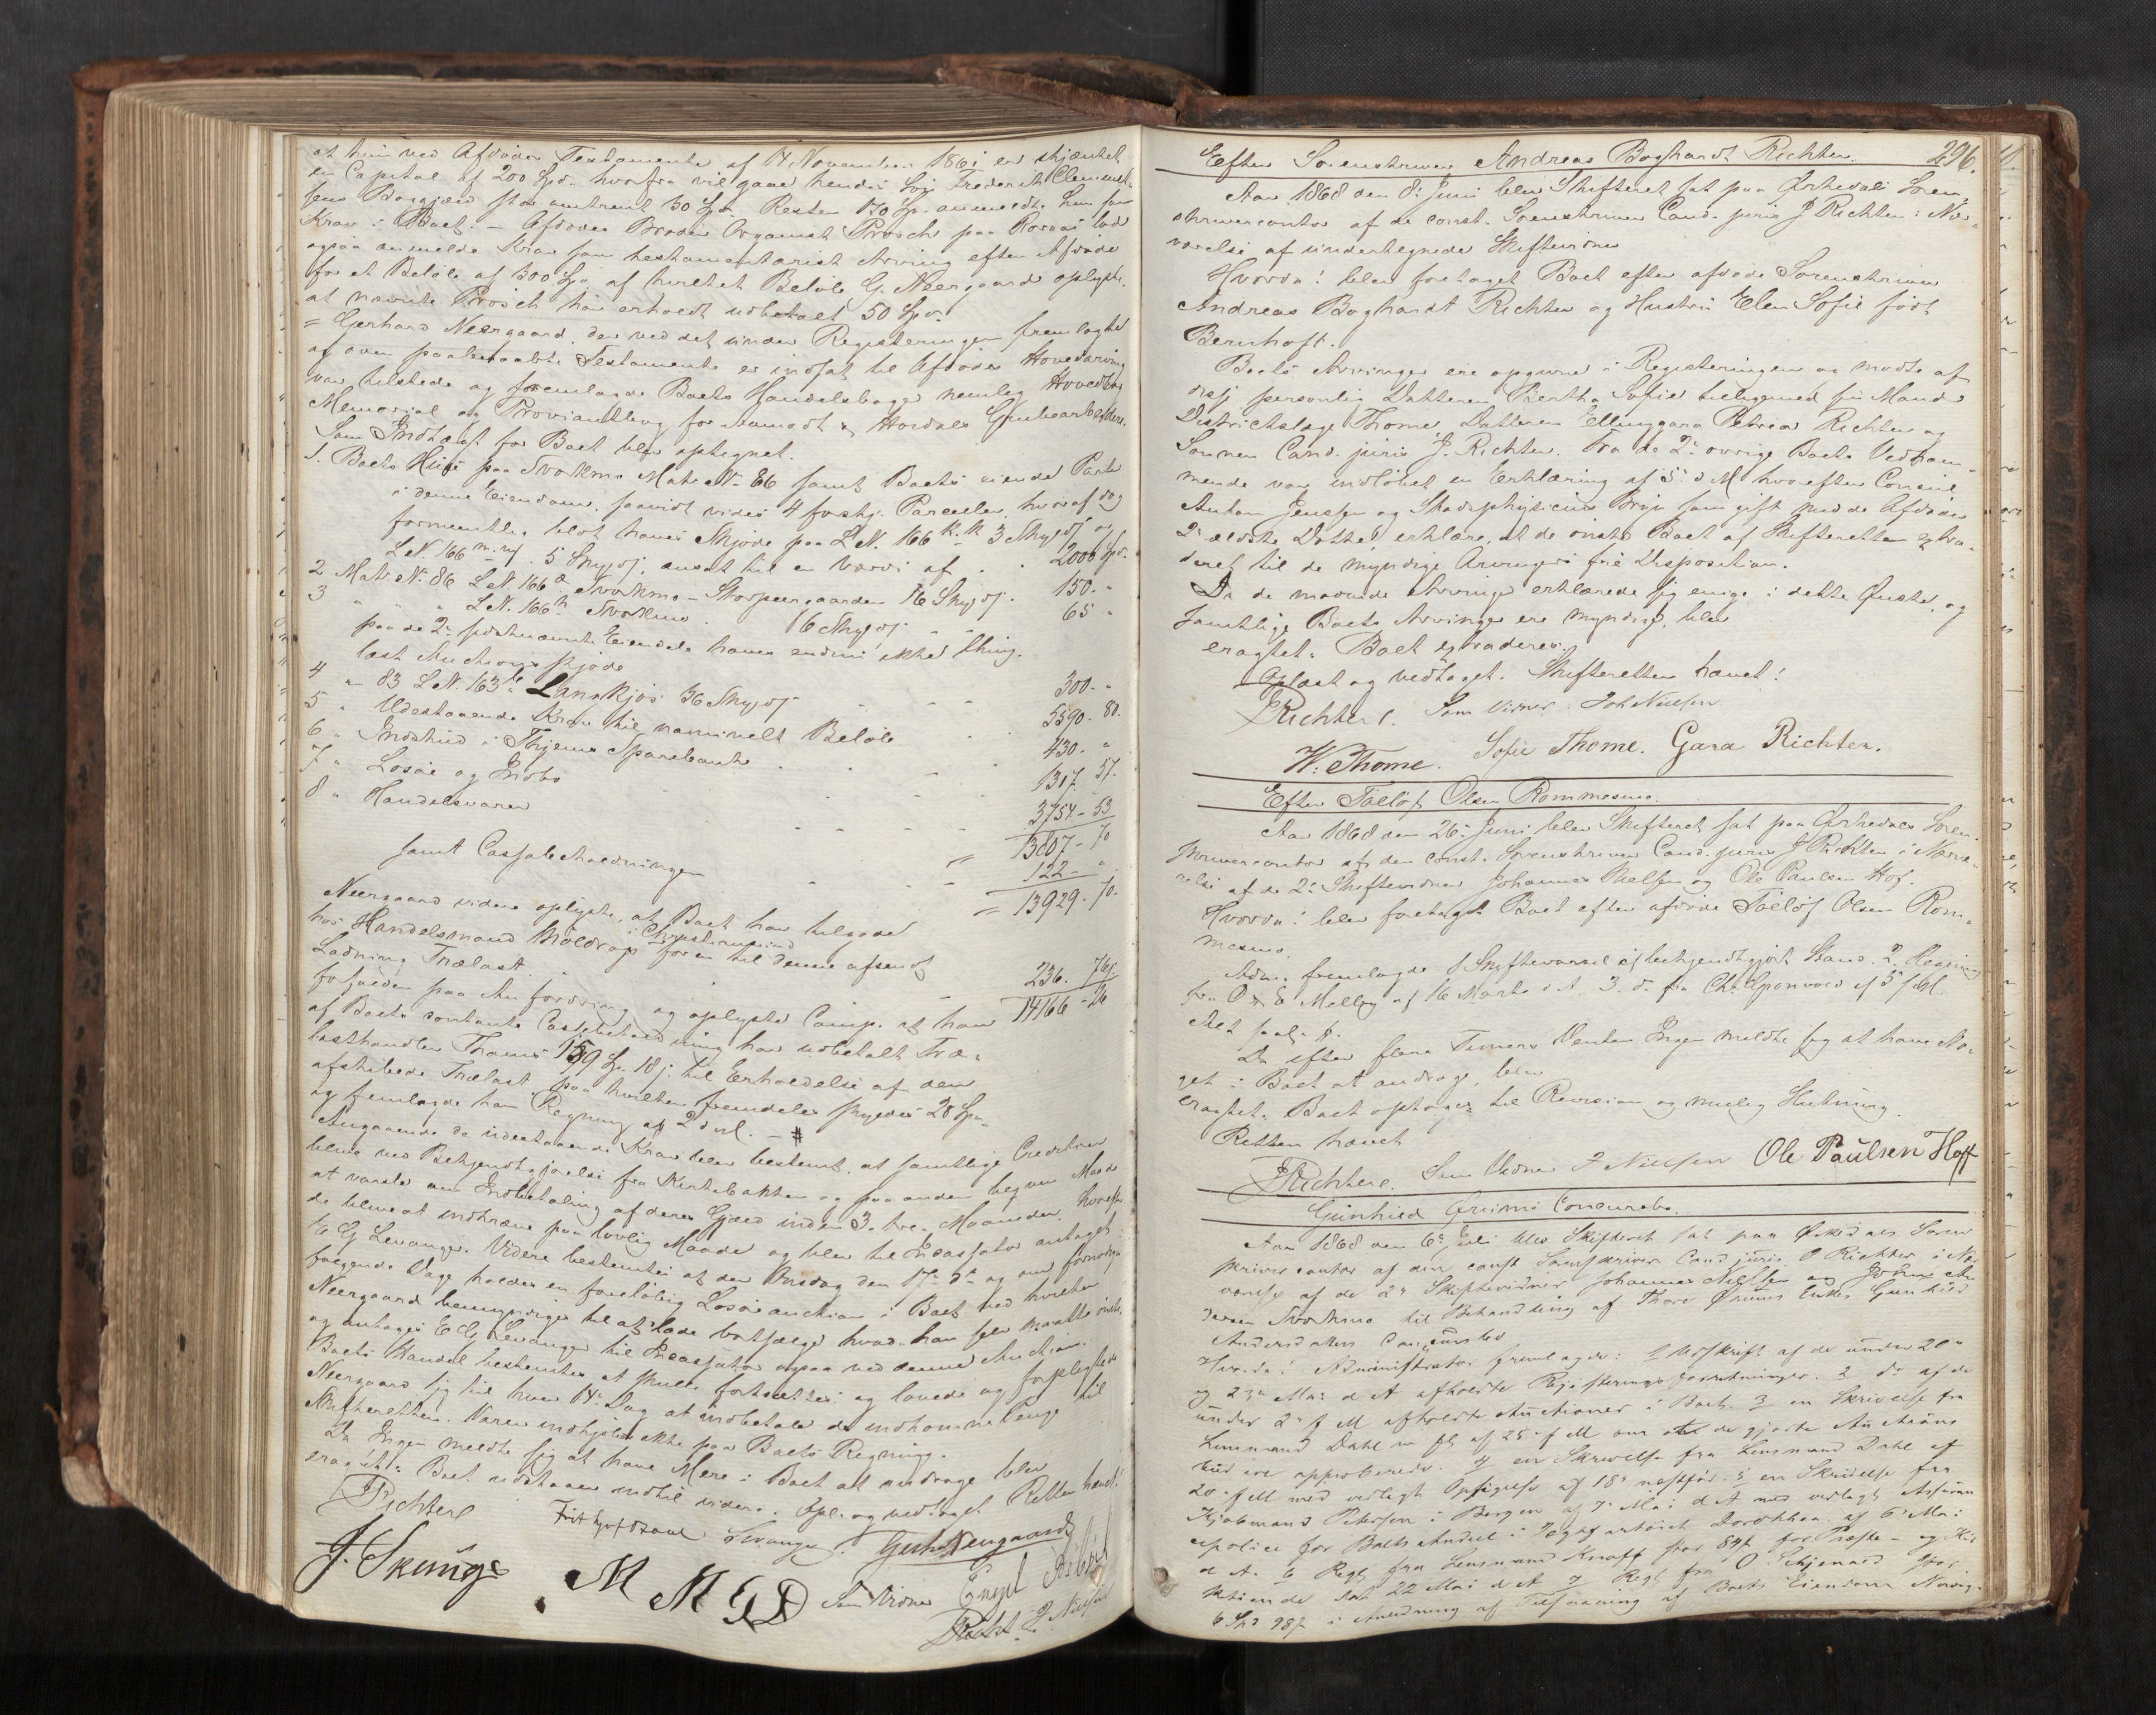 at hun ved Afdødes Testamente af 14 November 1861 er skjænket
en Capital af 200 Spd. hvorfra vil gaae hendes Søn Frederik Clement-
sens Boggjæld stor omtrent 30 Spd. Resten 170 Sp. anmeldte hun som
Krav i Boet. - Afdødes Broder Organist Prøsch paa Røraas lod
ogsaa anmelde Krav som testamentarisk Arving efter Afdøde
for et Beløb af 300 Spd. af hvilket Beløb G. Neergaard oplyste,
at nævnte Prøsch har erholdt udbetalt 50 Spd.
= Gerhard Neergaard, der ved det under Registeringen fremlagte
og oven paaberaabte Testamente er indsat til Afdødes Hovedarving
var tilstede og fremlagde Boets Handelsbøger nemlig Hovedbog
Memorial og Proviantbog for Aamodt & Hordals Grubearbeidere.
Som Indtægt for Boet blev optegnet.
1. Boets Huse paa Svorkmo Matr. N. 86 samt Boets eiende Parter
i denne Eiendom, saavidt vides 4 forskj. Parceller, hvoraf dog
formentlig blot haves Skjøde paa L.N. 166 k. k 3 Skp. og
L.N. 166 m. 5 Skp. ansat til en Værdi af . . 2000 Spd.
2 Matr. N. 86 L.N. 166 Svorkmo - Storpeergaarden 16 Sk. . 150. "
3 " " " L.N. 166 n Svorkmo . 16 Sk. - 65 "
paa de 2 sidstnævnte Eiendele haves endnu ikke thing-
læst Auctionsskjøde
4 " 83 L.N. 163 Langkjøs 36 Sk. - - - 300. "
5 " Udestaaende Krav til nominelt Beløb . . 5590. 80.
6 " Indskud i Thjems Sparebank . . - . 430. "
7 " Løsøe og Indbo - - - 1317. 57.
8 " Handelsvarer - - - - - 3754 - 53
= 13607 - 70
samt Cassabeholdningen - - - 122 - "
= 13929. 70.
Neergaard videre oplyste, at Boet har tilgode
hos Handelsmand Moldrup i Christiansund for en til denne afsendt
Ladning Trælast . . - 236. 76
14166 - 26
forfalden paa Anfordring og oplyste Comp. at han
af Boets contante Cassebeholdning har udbetalt Træ-
lasthandler Thams 159 Sp. 18 s. til Erholdelse af den
afskibede Trælast, paa hvilken fremdeles skyldes 28 Sp.
og fremlagde han Regning af 2 d. -
Angaaende de udestaaende Krav blev bestemt, at samtlige Creditorer
blive ved Bekjendtgjørelse fra Kirkebakken og paa anden beqvem Maade
at varsle om Indbetaling af deres Gjæld inden 3. tre. Maaneder, hvorefter
de blive at inddrive paa lovlig Maade og blev til Incassator antaget
E G Levanger. Videre bestemtes at der Onsdag den 17de ds og om fornøden
følgende Dage holdes en foreløbig Løsøreauction i Boet ved hvilken
Neergaard bemyndiges til at lade bortsælge hvad han selv maatte ønske,
og antages E G Levanger til Incassator ogsaa ved denne Auction.
Boets Handel bestemtes at skulle fortsættes og lovede og forpligtede
Neergaard sig til hver 14 Dag at indbetale de indkomne Penge til
Skifteretten. Varer indkjøbes ikke paa Boets Regning.
Da Ingen meldte sig at have Mere i Boet at andrage blev
eragtet: Boet udstaaer indtil videre. Opl. og vedtaget Retten hævet!
J Richter c Levanger. Gerh. Neergaard
J. Skunge. M M G D Som Vidner Engel
J. Nielsen
Efter Sorenskriver Andreas Boghardt Richter. 296.
Aar 1868 den 8. Juni blev Skifteret sat paa Ørkedals Soren-
skrivercontor af de const. Sorenskriver Cand. juris J Richter i Nær-
værelse af undertegnede Skiftevidner
Hvorda! blev foretaget Boet efter afdøde Sorenskriver
Andreas Boghardt Richter og Hustru Elen Sofie født
Bernhoft.
Boets Arvinger ere opgivne i Registeringen og mødte af
disse personlig Datteren Bertha Sofie tilligemed sin Mand
Districtslæge Thome, Datteren Ellinggara Petrea Richter og
Sønnen Cand. juris J. Richter. Fra de 2 øvrige Boets Vedkom-
mende var indløbet en Erklæring af 5 d. M. hvorefter Consul
Anton Jenssen og Stadsphysicus Bryn som gift med de Afdødes
2 ældste Døttre, erklære, at de ønske Boet af Skifteretten extra-
deret til de myndige Arvingers frie Disposition.
Da de mødende Arvinger erklærede sig enige i dette Ønske, og
samtlige Boets Arvinger ere myndige, blev
eragtet: Boet extraderes.
Oplæst og vedtaget. Skifteretten hævet!
J Richter c. Som Vidner: Joh Nielsen
W. Thome. Sofie Thome. Gara Richter.
Efter Tølløf Olsen Rommesmo.
Aar 1868 den 26. Juni blev Skifteret sat paa Ørkedals Soren-
skrivercontor af den const. Sorenskriver Cand. juris J Richter i Nærvæ-
relse af de 2 Skiftevidner Johannes Nielsen og Ole Paulsen Hof.
Hvorda! blev foretaget Boet efter afdøde Tølløf Olsen Rom-
mesmo.
Adm. fremlagde 1 Skiftevarsel af bekjendtgjort Stand. 2. Regning
fra O & E Melbye af 16 Marts d. A. 3. d. fra Chr. Gponvold af 5
Da efter flere Timers Venten Ingen meldte sig at have No-
get i Boet at andrage, blev
eragtet. Boet optages til Revision og muelig Slutning.
Retten hævet
J Richter c. Som Vidner J Nielsen Ole Paulsen Hoff
Gunhild Grums Concursbo.
Aar 1868 den 6. Juli blev Skifteret sat paa Ørkedals Soren
skrivercontor af den const Sorenskriver Cand juris J Richter i Næ
værelse af de 2 Skiftevidner Johannes Nielsen og John An
dersen Svorkmo til Behandling af Thore Grums Enke Gunhild
Andersdatters Concursbo
Hvorda! Administrator fremlagde: 1 Udskrift af de under 20
og 23 Mai d A afholdte Registeringsforretninger. 2 do af de
under 2 f M afholdte Auctioner i Boet. 3 en Skrivelse fra
Lensmand Dahl af 25 f M om at de gjorte Auctions
bud ere approberede. 4 en Skrivelse fra Lensmand Dahl af
20 f M med vedlagt Opsigelse af 18 næstfør. 5 en Skrivelse fra
Kjøbmand Petersen i Bergen af 7 Mai d A med vedlagt Assuran
cepolice for Boets Andel i Jægtfartøiet Dorothea af 6 Mai
d A. 6 Regt fra Lensmand Knoff stor 84 for Præste- og Kir
ketiende dat 22 Mai d A 7 Regt fra O. stor
6 Spd 98 i Anledning af Tilsaaning af Boets Eiendom